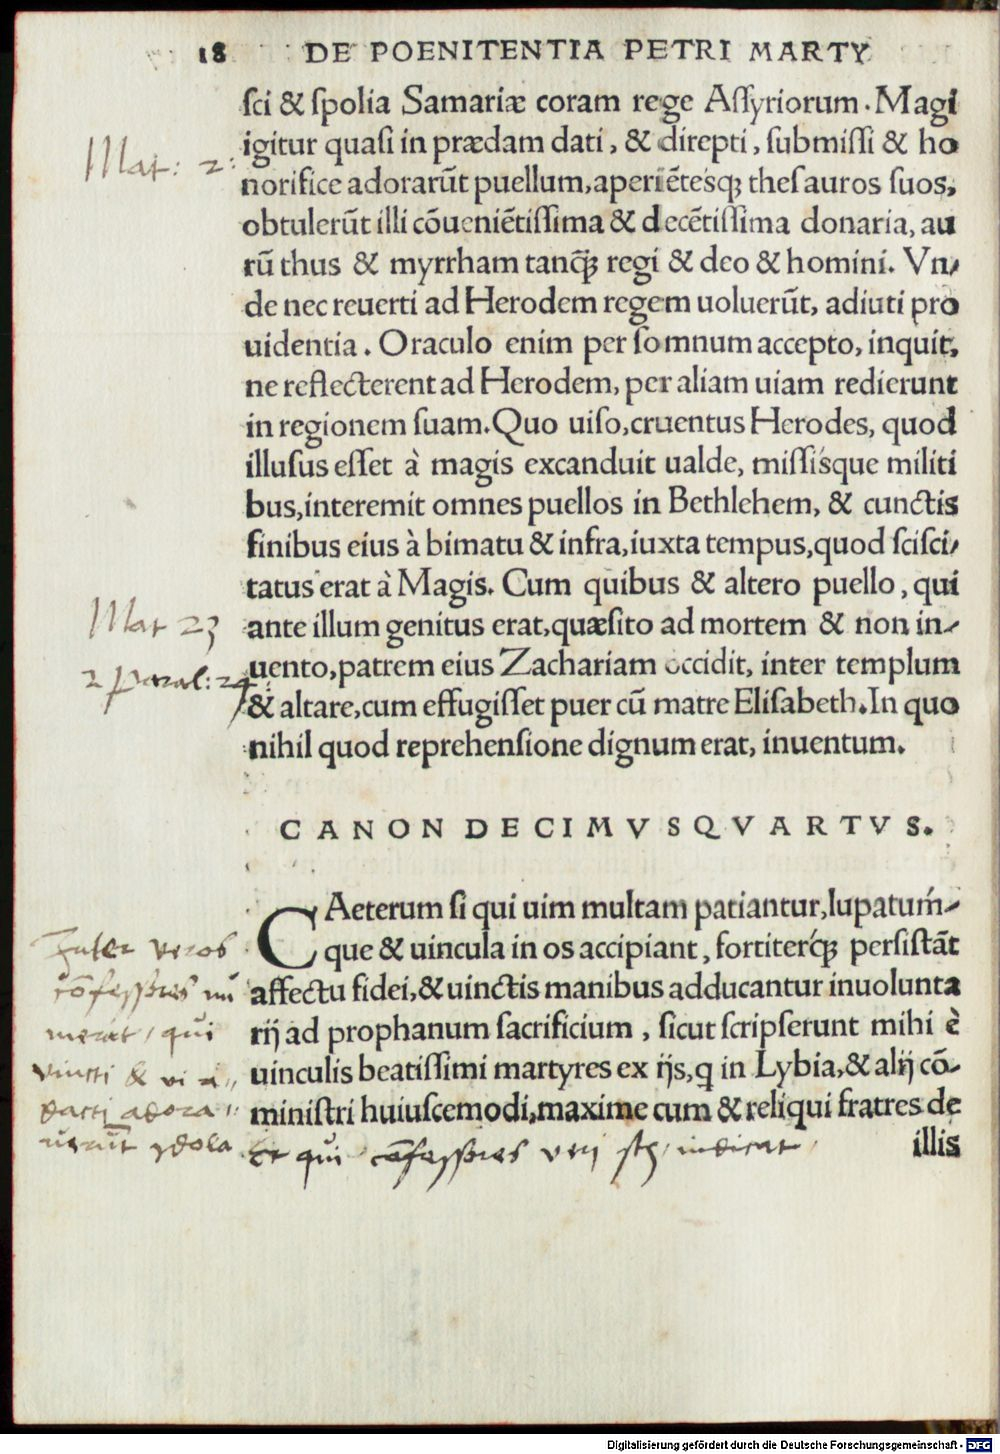 18 DE POENITENTIA PETRI MARTY
ſci & ſpolia Samariæ coram rege Aſſyriorum. Magi
igitur quaſi in prædam dati, & direpti, ſubmiſſi & ho
norifice adorarūt puellum, aperiētesq; theſauros ſuos,
obtulerūt illi cōueniētiſſima & decētiſſima donaria, au
rū thus & myrrham tanq̃; regi & deo & homini. Vn-
de nec reuerti ad Herodem regem uoluerūt, adiuti pro
uidentia. Oraculo enim per ſomnum accepto, inquit,
ne reflecterent ad Herodem, per aliam uiam redierunt
in regionem ſuam. Quo uiſo, cruentus Herodes, quod
illuſus eſſet à magis excanduit ualde, miſſisque militi
bus, interemit omnes puellos in Bethlehem, & cunctis
finibus eius à bimatu & infra, iuxta tempus, quod ſciſci-
tatus erat à Magis. Cum quibus & altero puello, qui
ante illum genitus erat, quæſito ad mortem & non in-
uento, patrem eius Zachariam occidit, inter templum
& altare, cum effugiſſet puer cū matre Eliſabeth. In quo
nihil quod reprehenſione dignum erat, inuentum.
Mat: 2:
Mat 23
2 Paral: 24
CANON DECIMVSQVARTVS.
CAeterum ſi qui uim multam patiantur, lupatum-
que & uincula in os accipiant, fortiterq́; perſiſtāt
affectu fidei, & uinctis manibus adducantur inuolunta
rij ad prophanum ſacrificium, ſicut ſcripſerunt mihi è
uinculis beatiſſimi martyres ex ijs, q in Lybia, & alij cō-
miniſtri huiuſcemodi, maxime cum & reliqui fratres de
illis
Inter veros
cōfessores nu
merat, qui
vincti & vi a
dacti adora
uerūt ydola
Et qui cōfessores veri indicat